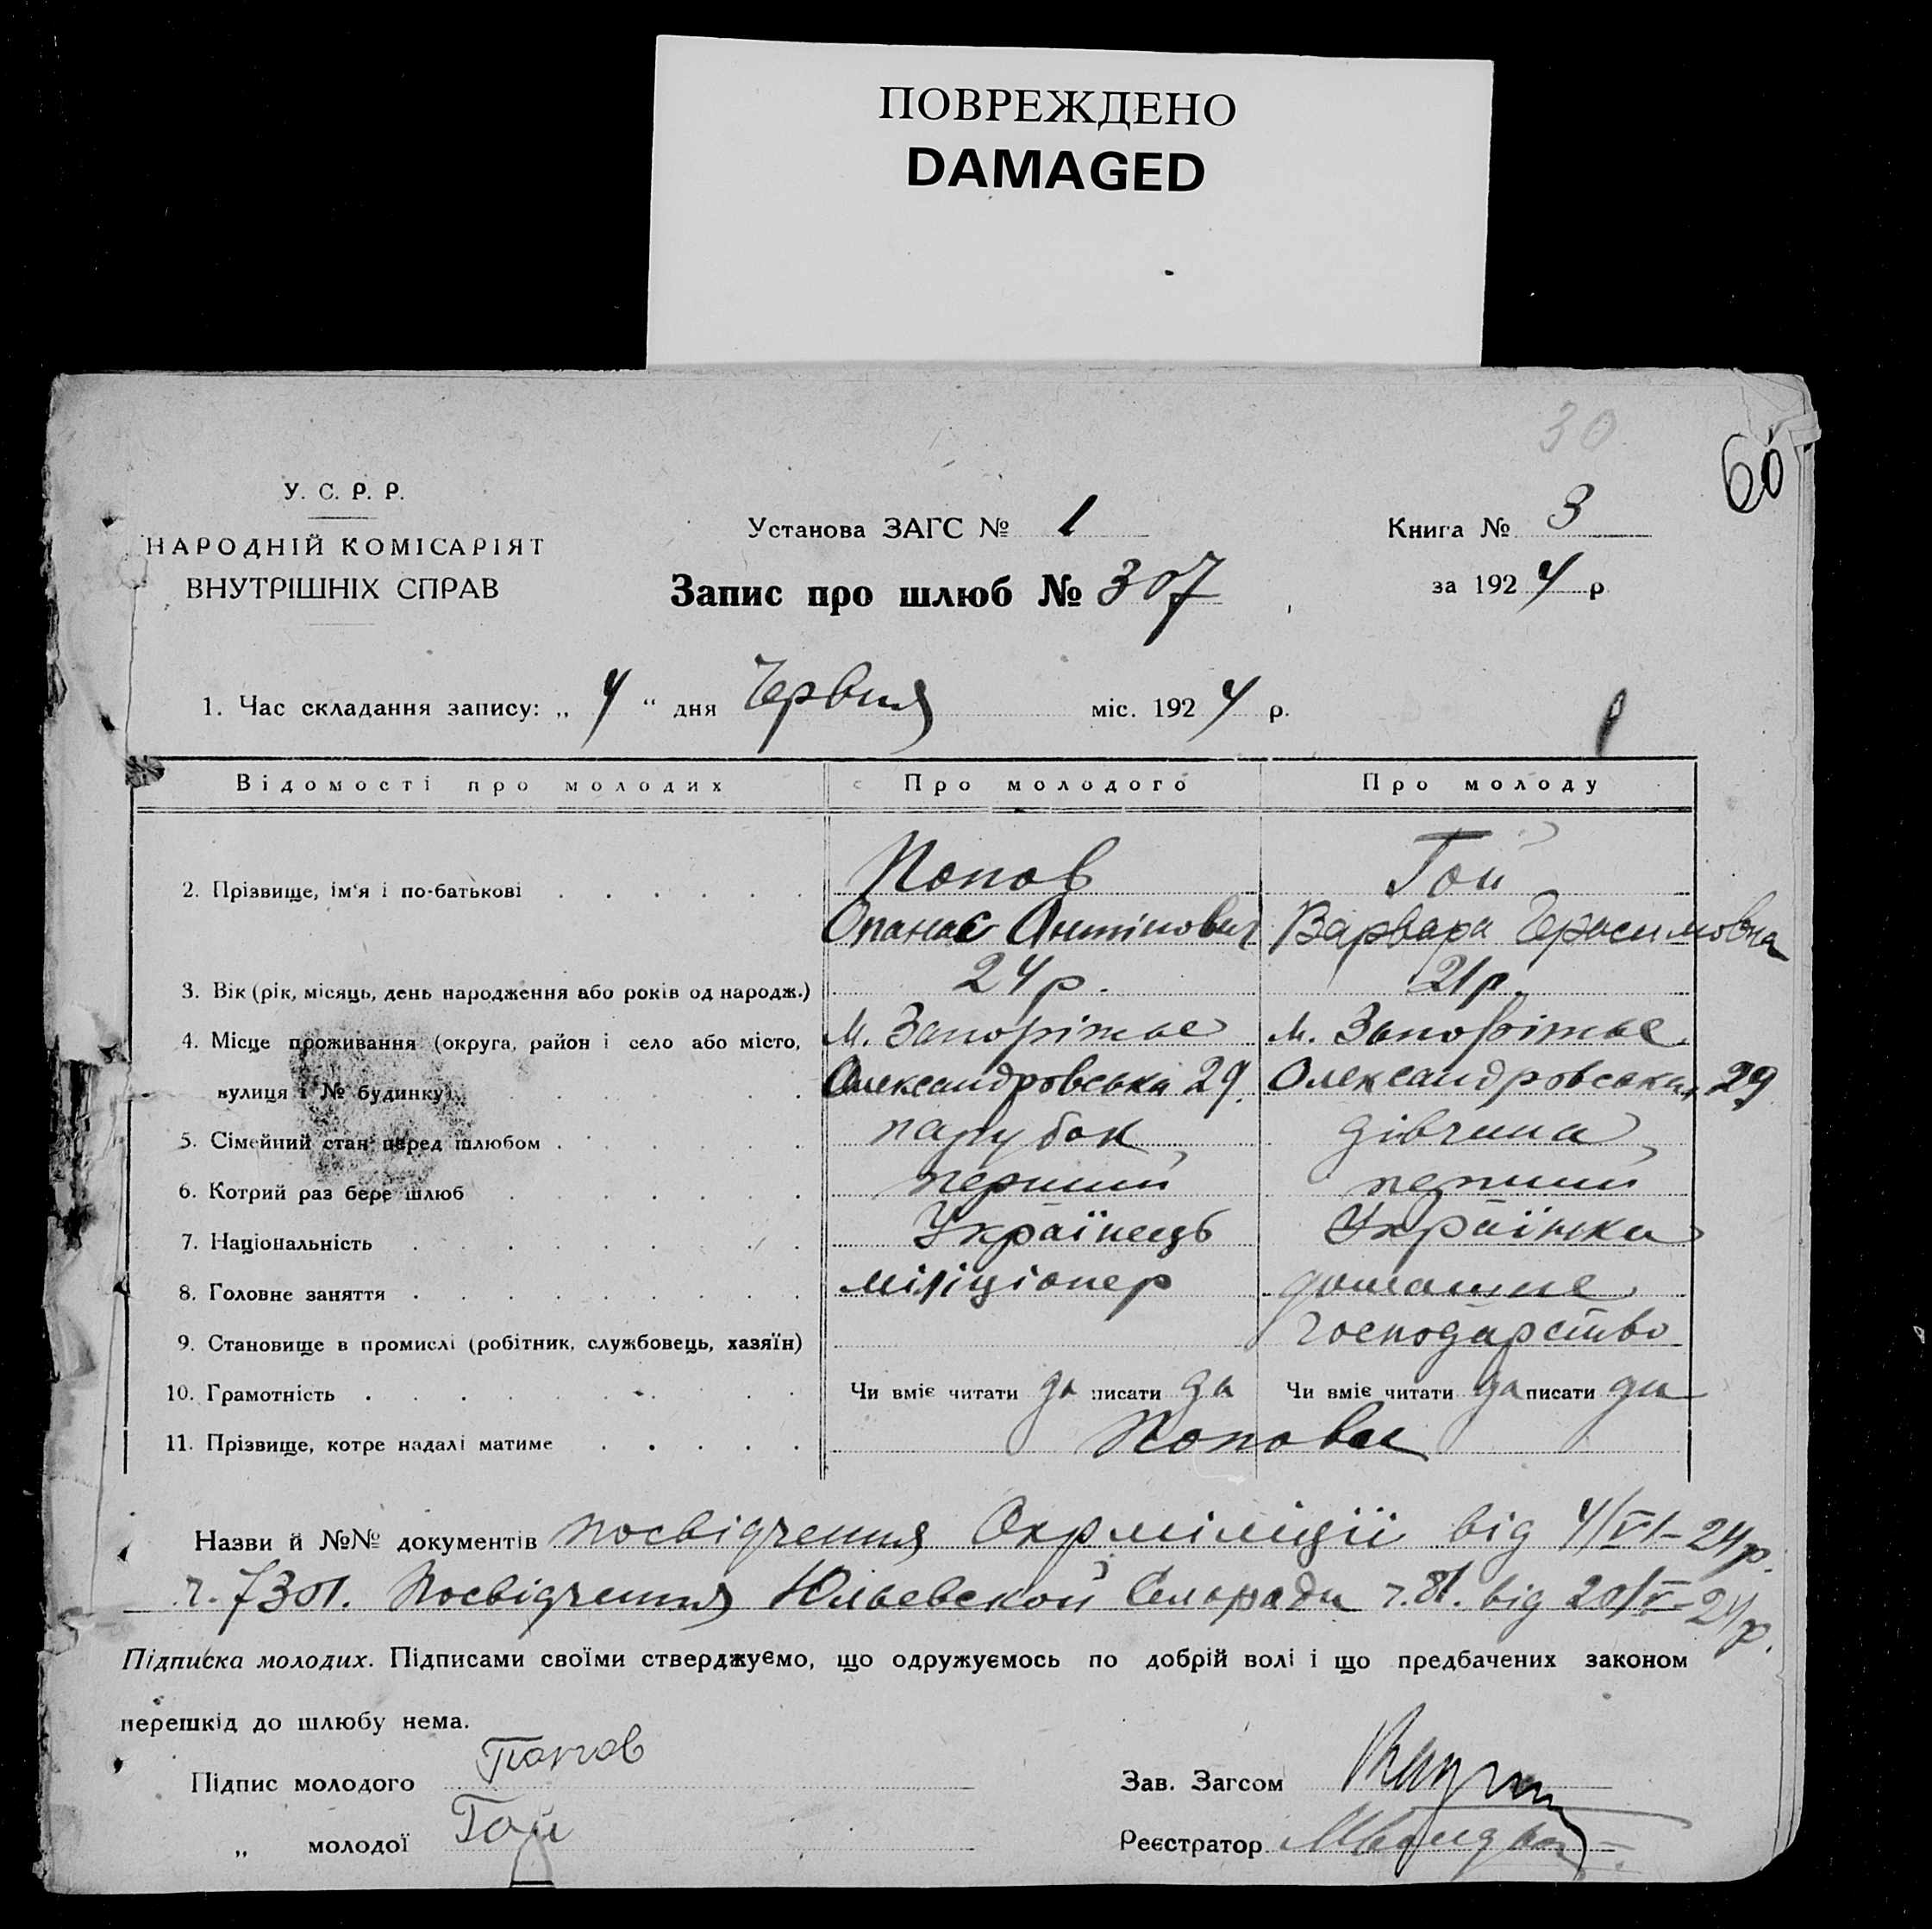 ПОВРЕЖДЕНО
DAMAGED
30
60
У. С. Р. Р.
НАРОДНІЙ КОМІСАРІЯТ
ВНУТРІШНІХ СПРАВ
Установа ЗАГС № 1
Книга № 3
Запис про шлюб № 307
за 1924 р
1. Час складання запису: „ 4 “ дня Червня міс. 1924 р.
Відомості про молодих Про молодого Про молоду
Попов Гой
2. Прізвище, ім'я і по-батькові
Опанас Антінович Варвара Герасимовна
3. Вік (рік, місяць, день народження або років од народж.) 24 р. 21 р.
4. Місце проживання (округа, район і село або місто, М. Запоріжжє м. Запоріжжє
вулиця і № будинку) Олександровська 29. Олександровська, 29
5. Сімейний стан перед шлюбом парубок дівчина
6. Котрий раз бере шлюб перший перший
7. Національність Українець Українка
8. Головне заняття міліціонер домашнє
9. Становище в промислі (робітник, службовець, хазяїн) господарство
10. Грамотність Чи вміє читати да писати да Чи вміє читати да писати да
11. Прізвище, котре надалі матиме Попови
Назви й №№ документів посвідчення Окрміліції від 4/VI-24 р.
ч. 7301. Посвідчення Юльевской Сельради ч. 81. від 20/V-24 р.
Підписка молодих. Підписами своїми стверджуємо, що одружуємось по добрій волі і що предбачених законом
перешкід до шлюбу нема.
Підпис молодого Попов Зав. Загсом
„ молодої Гой Реєстратор